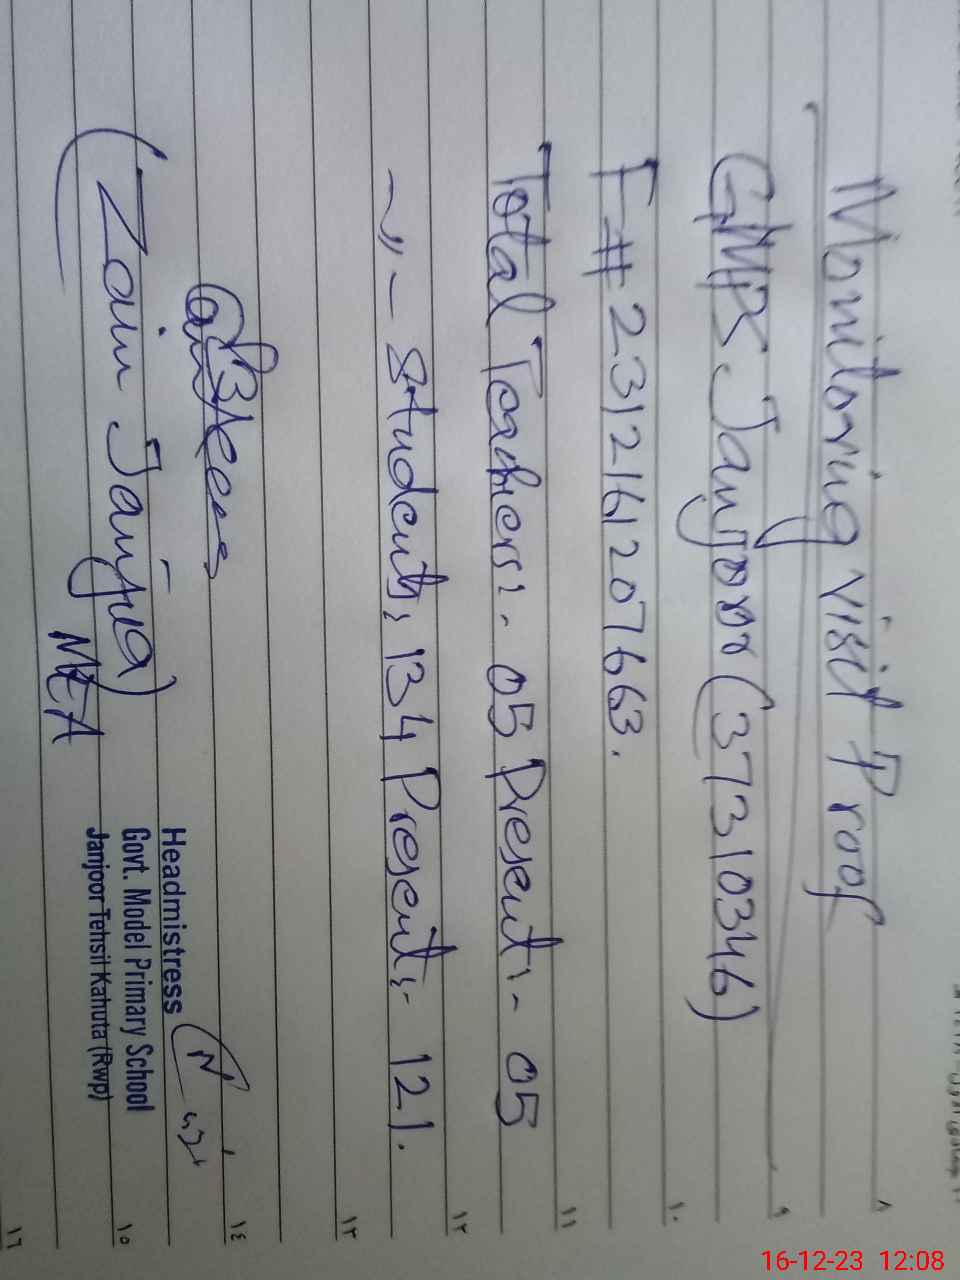 Monitoring visit Proof
GMPS Janjoor (37310346)
F# 2312161207663.
Total Teachers:- 05 Present:- 05
~ 〃 - Students: 134 Present:- 121.
(Zain Janjua)
MEA
Headmistress
Govt. Model Primary School
Janjoor Tehsil Kahuta (Rwp)
٨
٩
١٠
١١
١٢
١٣
١٤
١٥
١٦
16-12-23 12:08